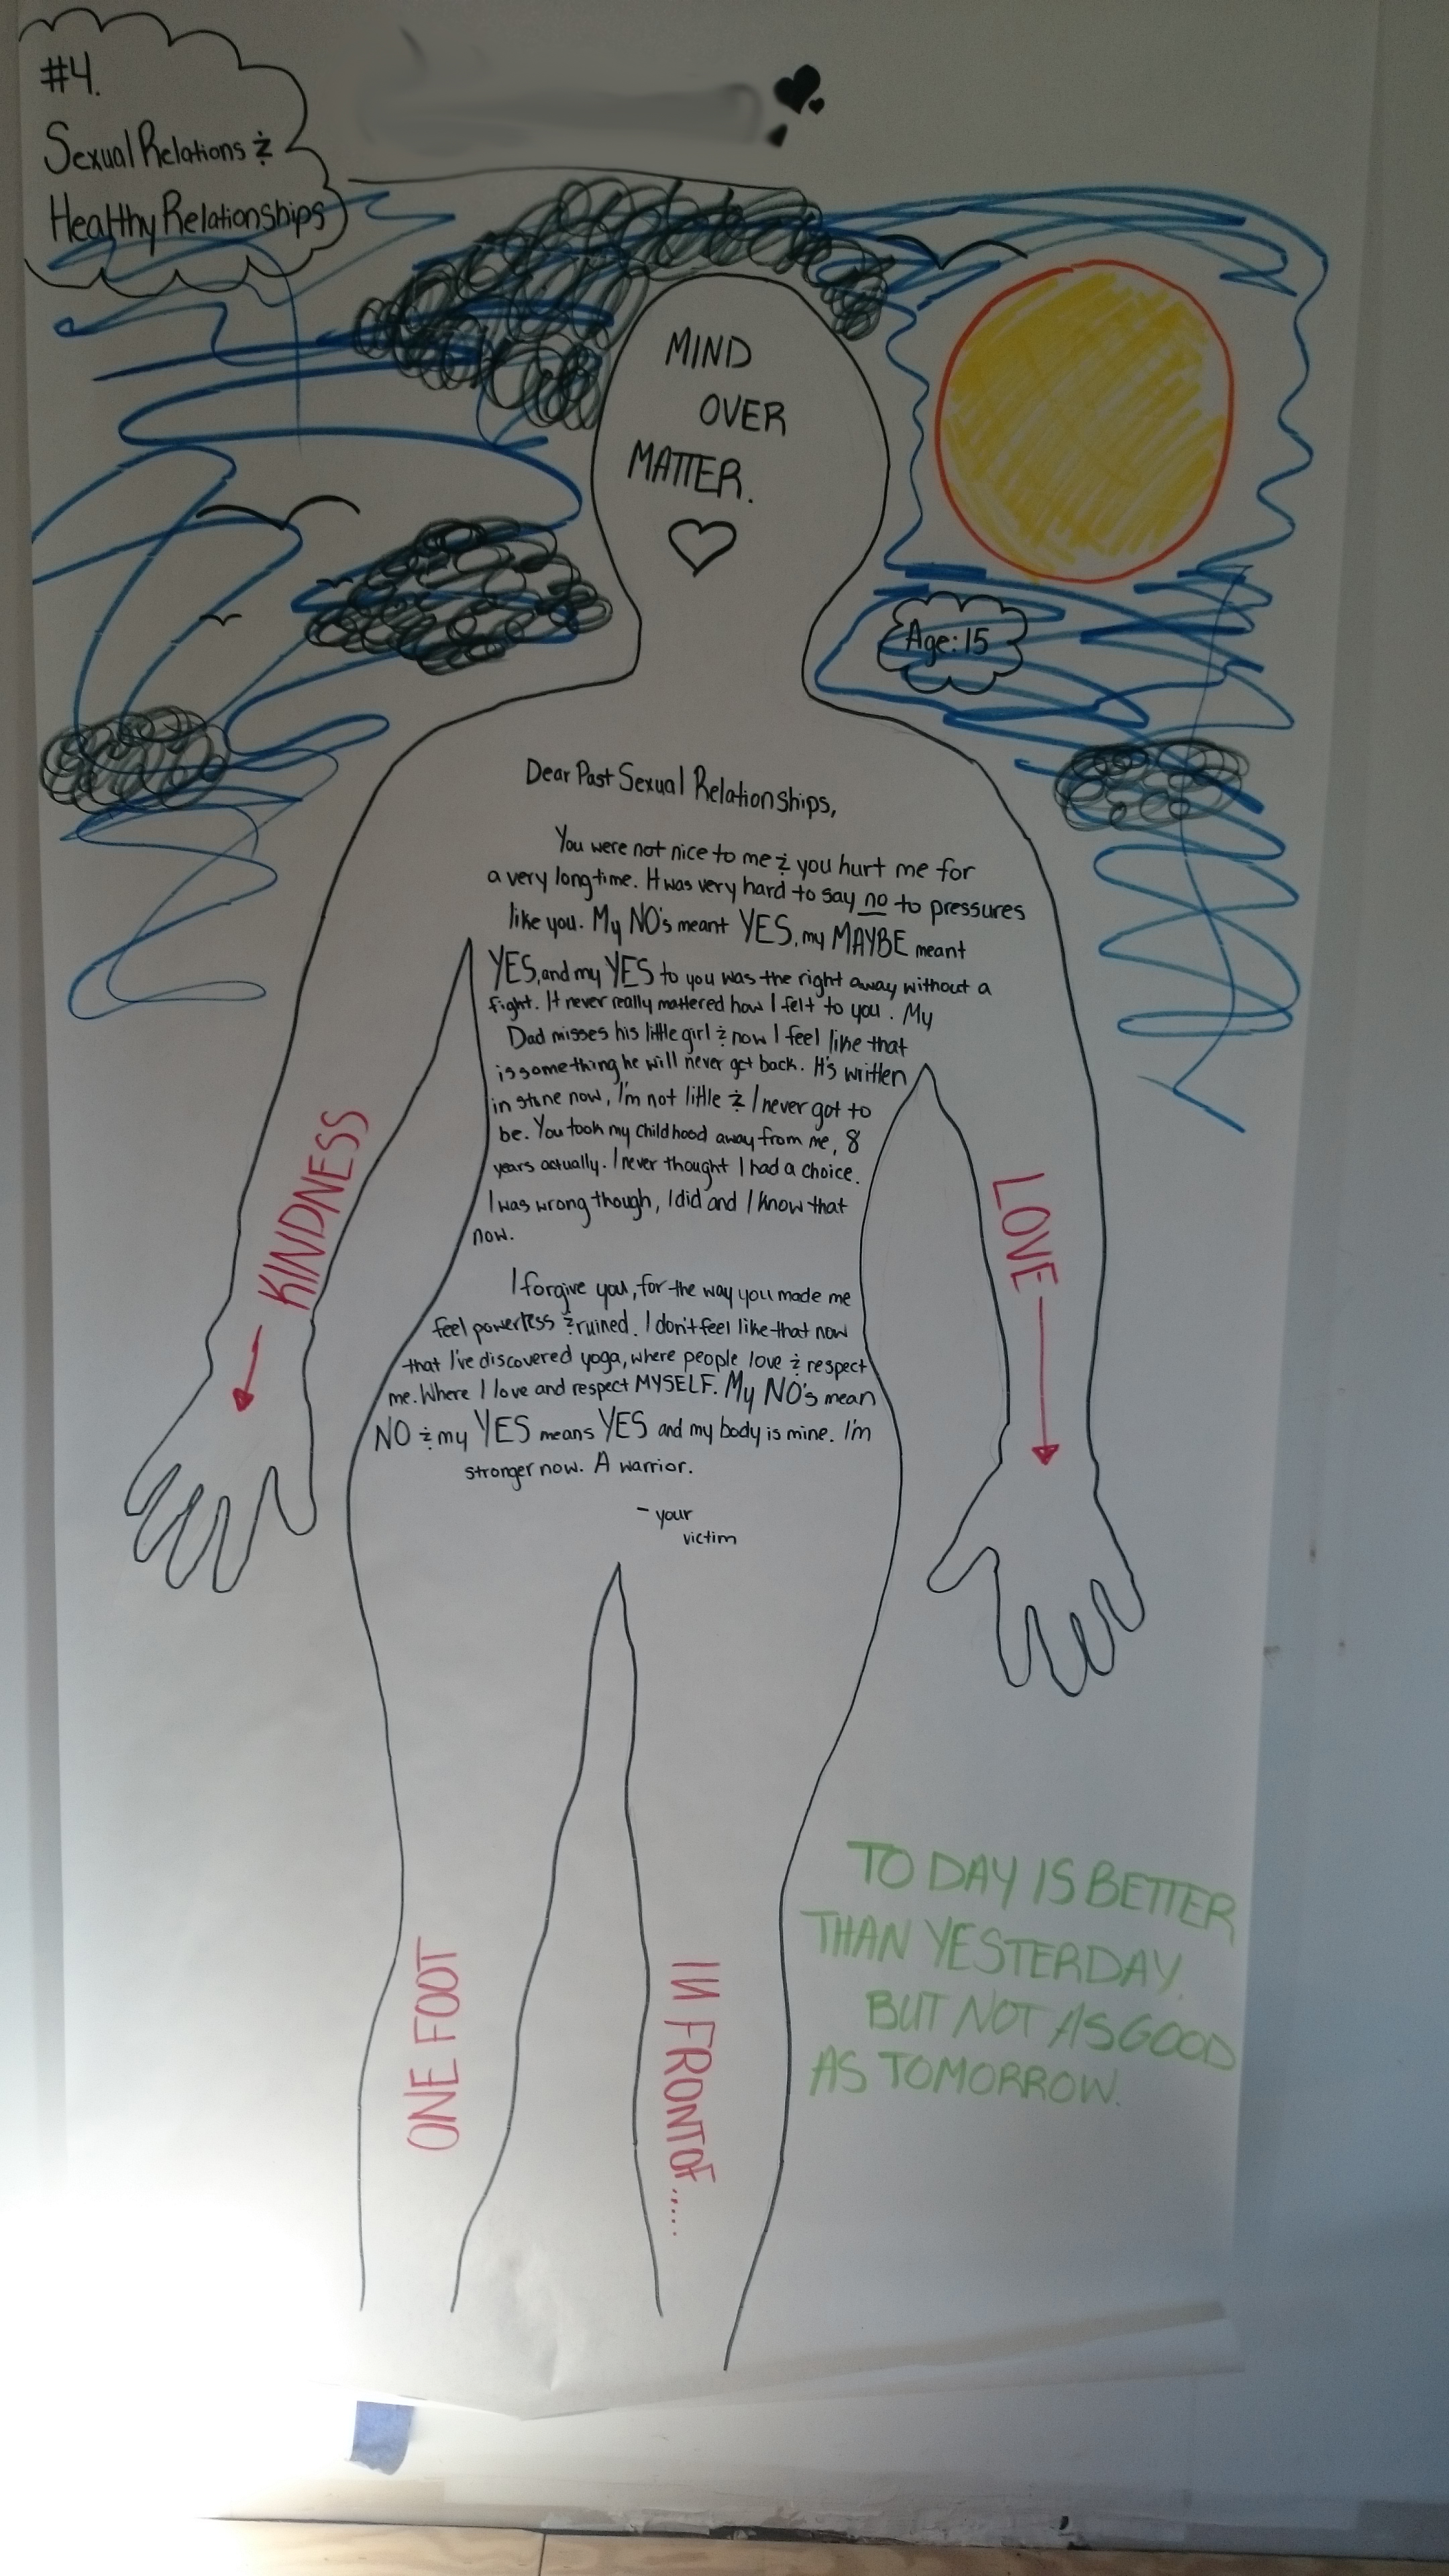 #4.
Sexual Relations &
Healthy Relationships
MIND
OVER
MATTER.
Age: 15
Dear Past Sexual Relationships,
You were not nice to me & you hurt me for
a very long time. It was very hard to say no to pressures
like you. My NO's meant YES, my MAYBE meant
YES, and my YES to you was the right away without a
fight. It never really mattered how I felt to you. My
Dad misses his little girl & now I feel like that
is something he will never get back. It's written
in stone now, I'm not little & I never got to
be. You took my childhood away from me, 8
years actually. I never thought I had a choice.
I was wrong though, I did and I know that
now.
I forgive you, for the way you made me
feel powerless & ruined. I don't feel like that now
that I've discovered yoga, where people love & respect
me. Where I love and respect MYSELF. My NO's mean
NO & my YES means YES and my body is mine. I'm
stronger now. A warrior.
- your
victim
KINDNESS
LOVE
ONE FOOT
IN FRONT OF......
TODAY IS BETTER
THAN YESTERDAY.
BUT NOT AS GOOD
AS TOMORROW.